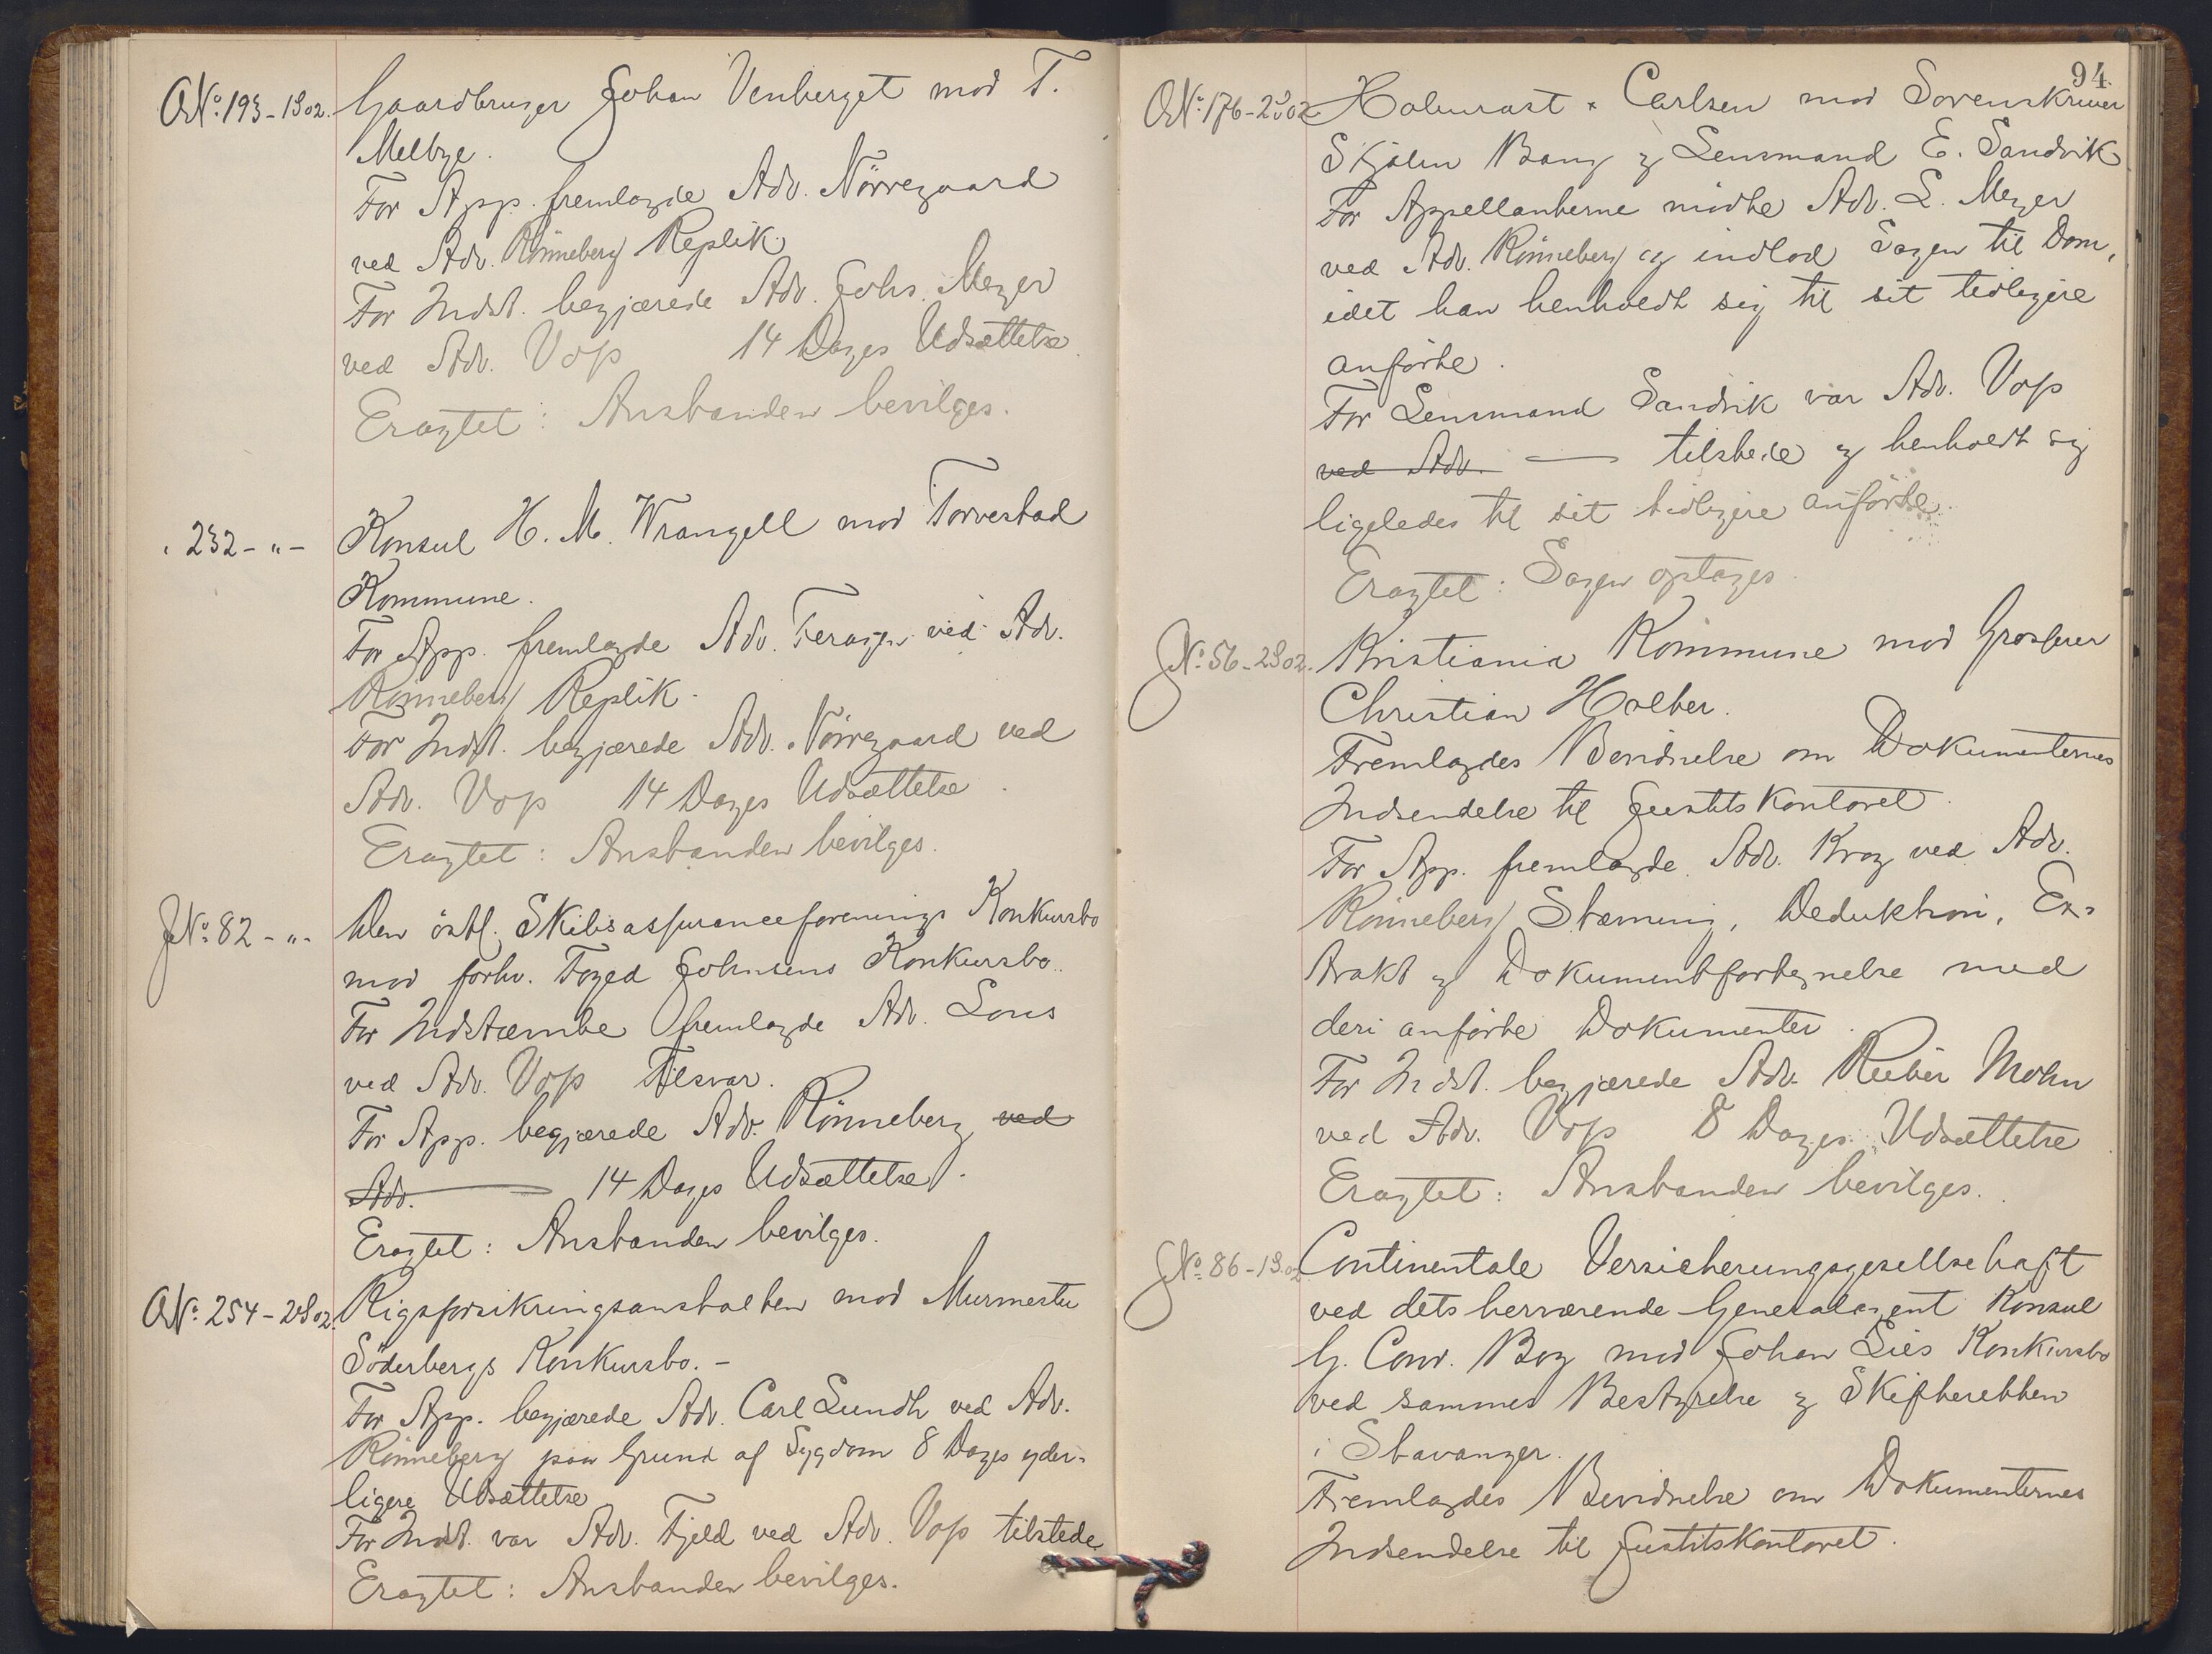 O.No. 193 - 1S02. Gaardbruger Johan Venberget mod T.
Melbye.
For App. fremlagde Adv. Nörregaard
ved Adv. Rönneberg Replik.
For Indst. begjærede Adv. Johs. Meyer
ved Adv. Voss 14 Dages Udsættelse
Eragtet: Anstanden bevilges.
" 232 - " - Konsul H. M. Wrangell mod Torvestad
Kommune.
For App. fremlagde Adv. Feragen ved Adv.
Rönneberg Replik.
For Indst. begjærede Adv. Nörregaard ved
Adv. Voss 14 Dages Udsættelse.
Eragtet: Anstanden bevilges.
J.No. 82 - " - Den östl. Skibsassuranceforenings Konkursbo
mod forhv. Foged Johnsens Konkursbo.
For Indstævnte fremlagde Adv. Lous
ved Adv. Voss Tilsvar.
For App. begjærede Adv. Rönneberg ved
Adv. 14 Dages Udsættelse.
Eragtet: Anstanden bevilges.
O.No. 254 - 2S02. Rigsforsikringsanstalten mod Murmester
Söderbergs Konkursbo. -
For App. begjærede Adv. Carl Lundh ved Adv.
Rönneberg paa Grund af Sygdom 8 Dages yder-
ligere Udsættelse
For Indst. var Adv. Fjeld ved Adv. Voss tilstede
Eragtet: Anstanden bevilges.
94.
O.No. 176 - 2S02 Holmrast & Carlsen mod Sorenskriver
Skjolm Bang og Lensmand E. Sandvik
For Appellanterne mödte Adv. L. Meyer
ved Adv. Rönneberg og indlod Sagen til Dom,
idet han henholdt sig til sit tidligere
anförte.
For Lensmand Sandvik var Adv. Voss
ved Adv. — tilstede og henholdt sig
ligeledes til sit tidligere anförte.
Eragtet: Sagen optages.
J.No. 56 - 2S02. Kristiania Kommune mod Grosserer
Christian Holter.
Fremlagdes Bevidnelse om Dokumenternes
Indsendelse til Justitskontoret
For App. fremlagde Adv. Krog ved Adv.
Rönneberg Stævning, Deduktion, Ex-
trakt og Dokumentfortegnelse med
deri anförte Dokumenter.
For Indst. begjærede Adv. Rieber Mohn
ved Adv. Voss 8 Dages Udsættelse
Eragtet: Anstanden bevilges.
J.No. 86 - 1S02 Continentale Versicherungsgesellschaft
ved dets herværende Generalagent Konsul
G. Conr. Bog mod Johan Lies Konkursbo
ved sammes Bestyrelse og Skifteretten
i Stavanger.
Fremlagdes Bevidnelse om Dokumenternes
Indsendelse til Justitskontoret.